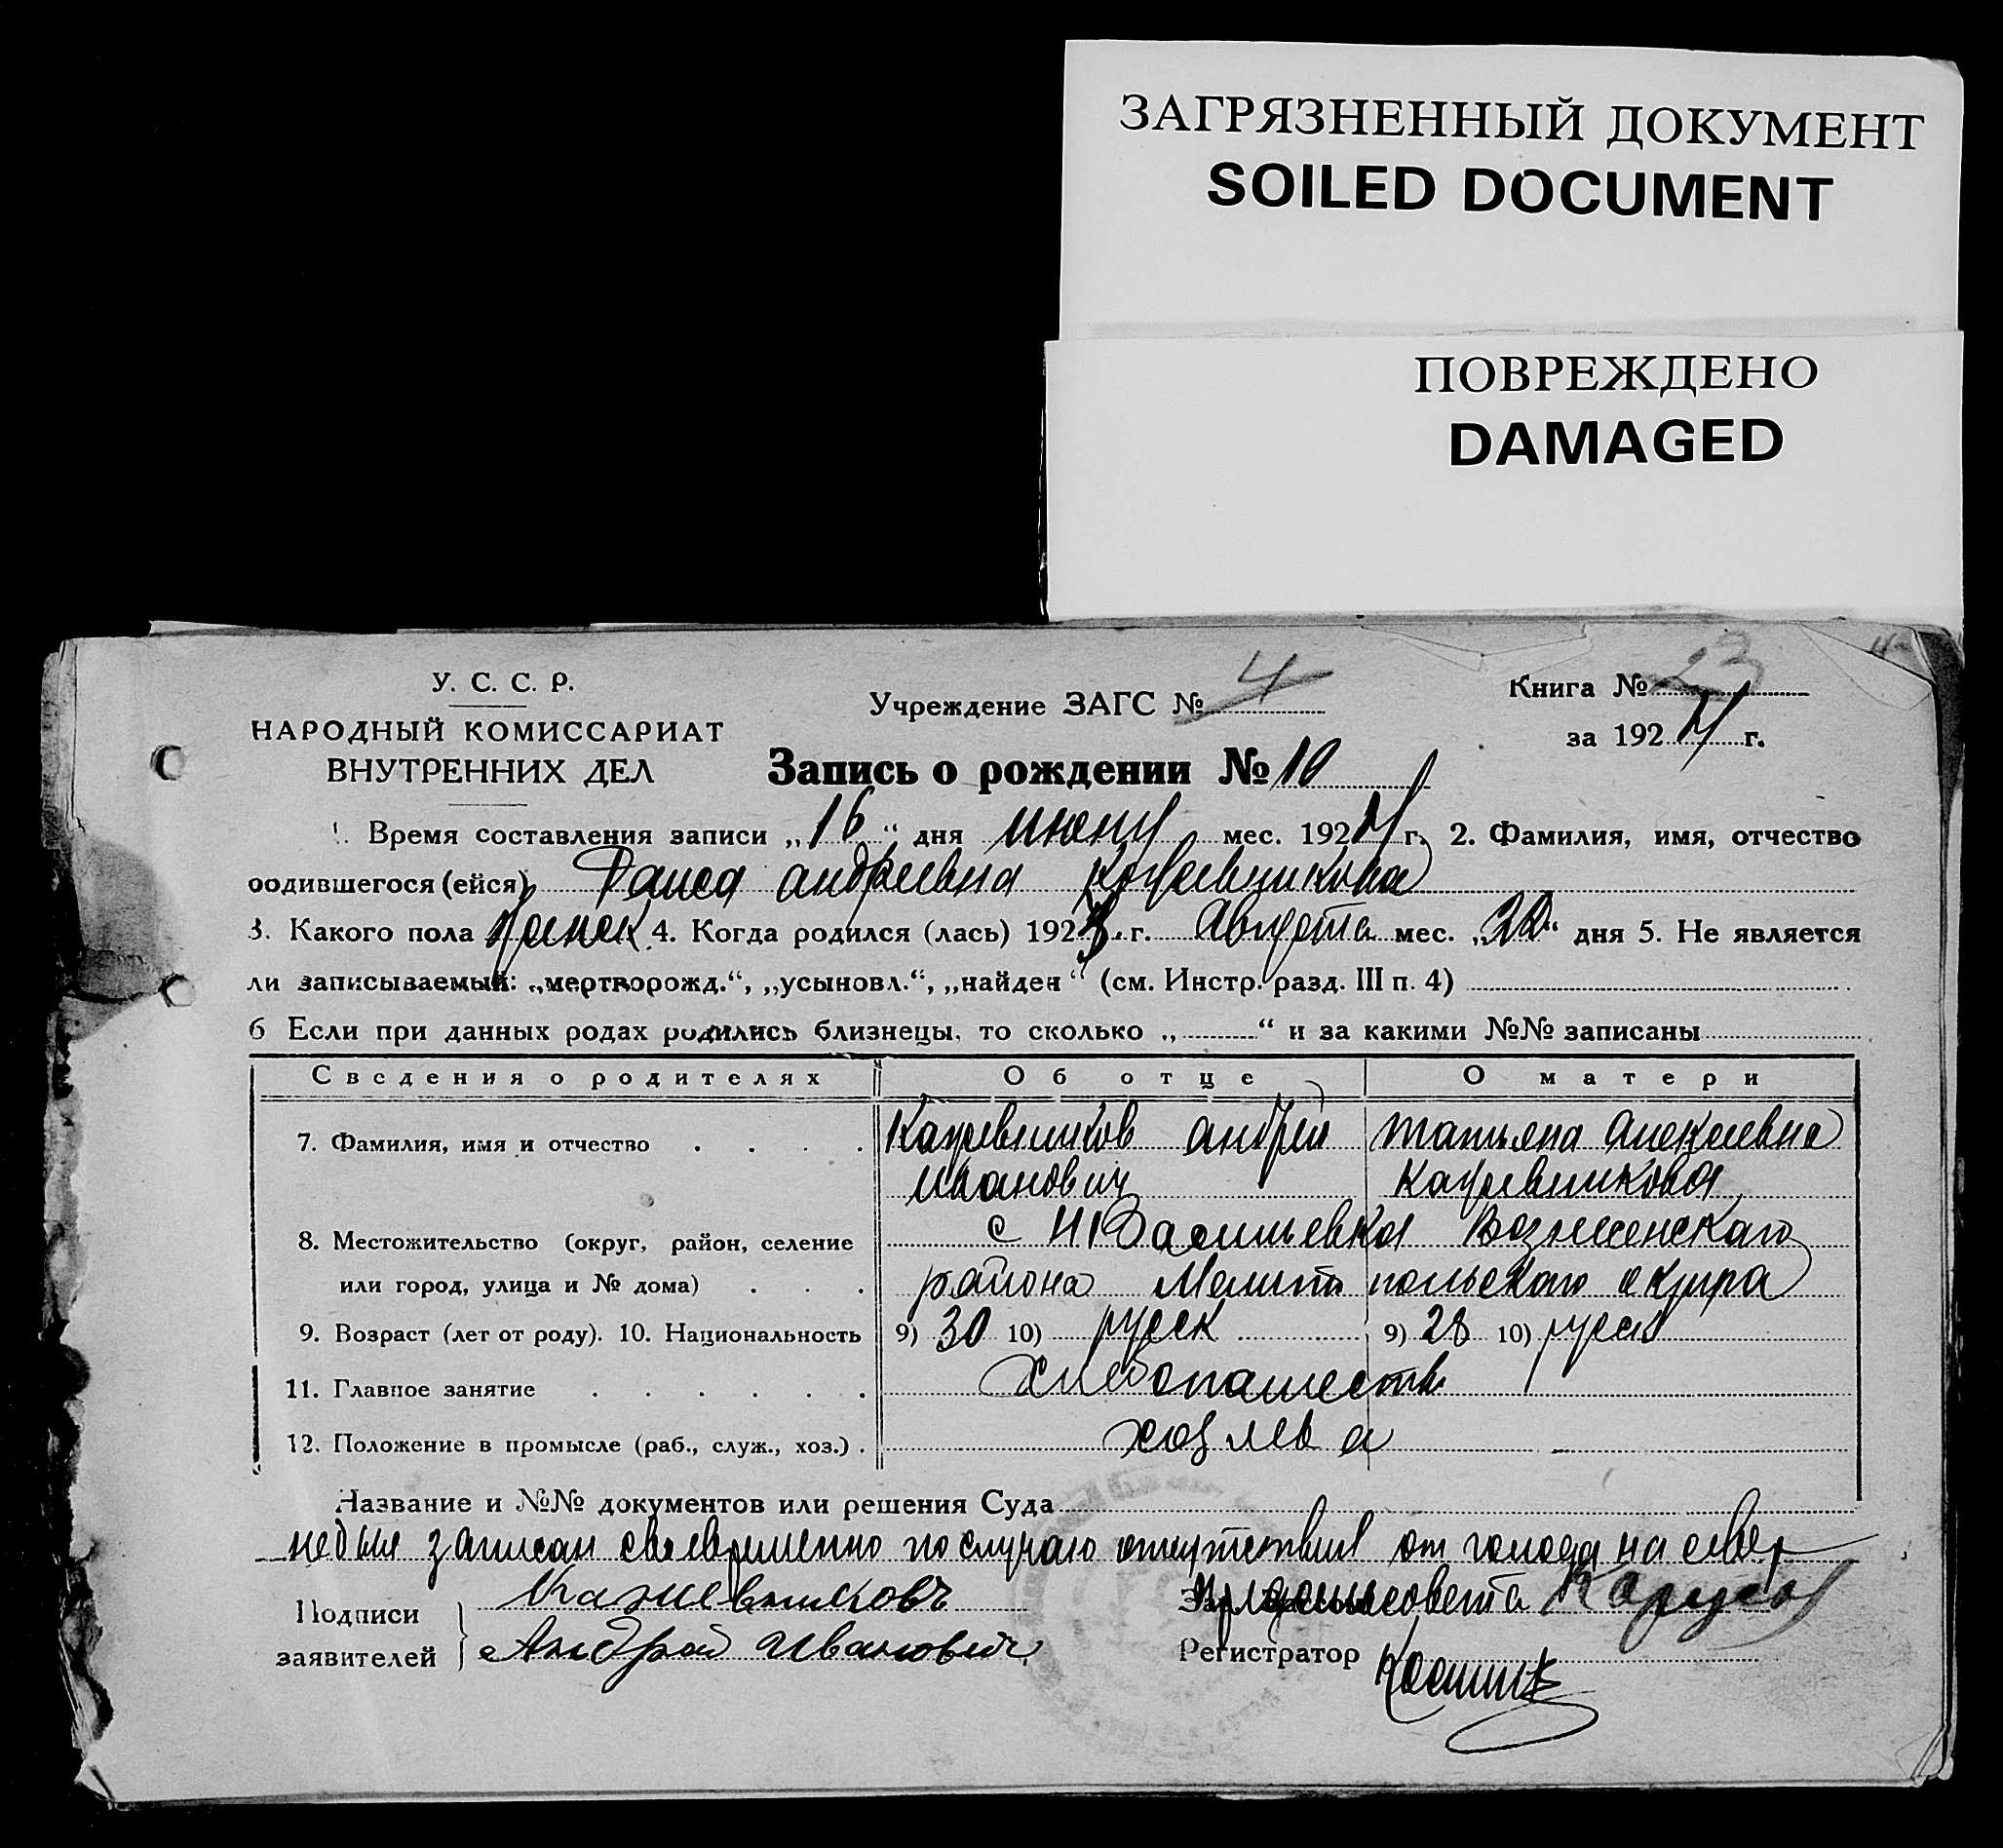 ЗАГРЯЗНЕННЫЙ ДОКУМЕНТ
SOILED DOCUMENT
ПОВРЕЖДЕНО
DAMAGED
У. С. С. Р.
НАРОДНЫЙ КОМИССАРИАТ
ВНУТРЕННИХ ДЕЛ
Учреждение ЗАГС № 4
Книга № 23
за 192 г.
Запись о рождении № 10
1. Время составления записи „16“ дня июня мес. 192 г. 2. Фамилия, имя, отчество
родившегося (ейся) Раиса андреевна
3. Какого пола женск 4. Когда родился (лась) 192 г. Августа мес. дня 5. Не является
ли записываемый: „мертворожд.“, „усыновл.“, „найден“ (см. Инстр. разд. III п. 4)
6 Если при данных родах родились близнецы, то сколько „ “ и за какими №№ записаны
Сведения о родителях Об отце О матери
7. Фамилия, имя и отчество Кажевников андрей Татьяна Алексеевна
Иванович Кажевникова
8. Местожительство (округ, район, селение с Н Васильевка
или город, улица и № дома) района Мелитопольского округа
9. Возраст (лет от роду). 10. Национальность 9) 30 10) русск 9) 28 10) русск
11. Главное занятие Хлебопашеств
12. Положение в промысле (раб., служ., хоз.) хозяева
Название и №№ документов или решения Суда
не был записан своевременно по случаю отсутствия от голода на север
Подписи заявителей
Кажевниковъ
Андрей Иванович
совета
Регистратор